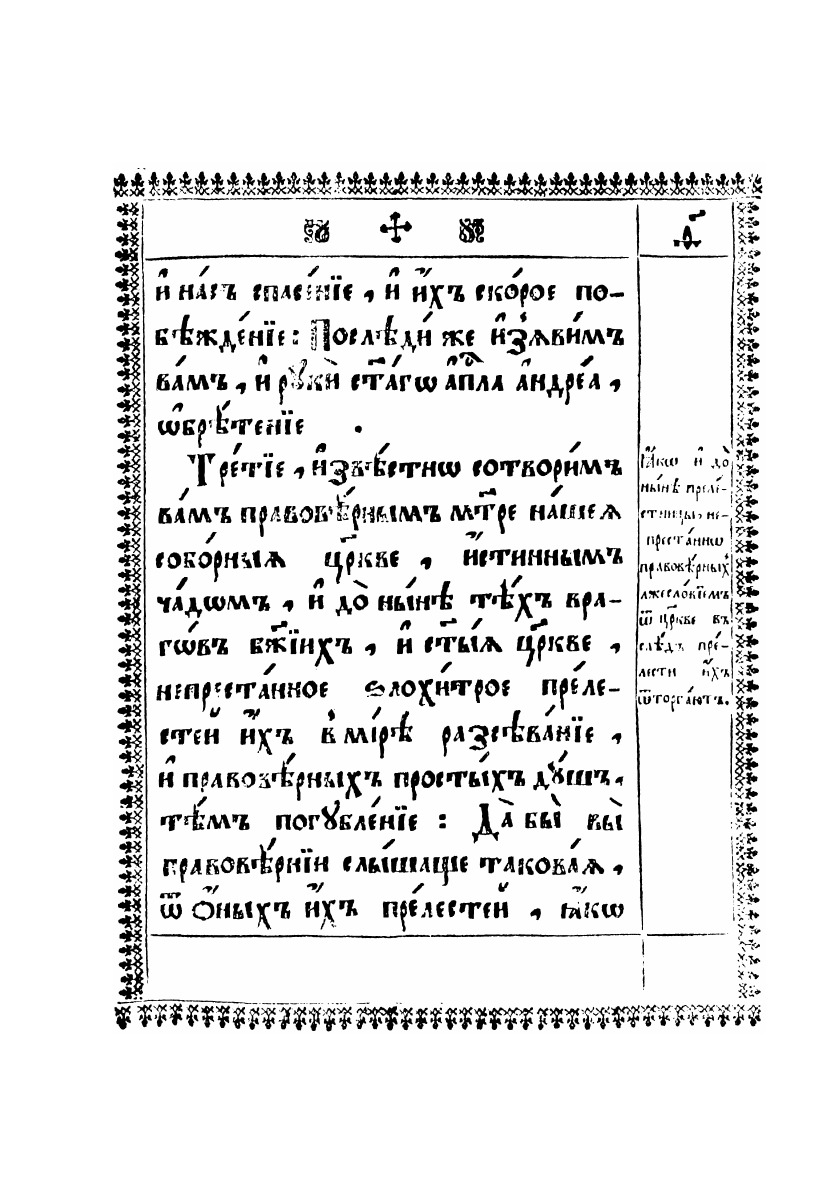 л҃
и҆ на́съ спасе́нїе , и҆ и҆́хъ ско́рое по-
бѣжде́нїе : Послѣди́ же и҆з̾ѧви́мъ
ва́мъ , и҆ рꙋкѝ ст҃а́гѡ а҆п҃ла а҆ндре́а ,
ѡ҆брѣ́тенїе .
Тре́тїе , и҆звѣ́стнѡ сотвори́мъ
ва́мъ правовѣ́рнымъ мт҃ре на́шеѧ
собо́рныѧ цр҃кве , и҆́стиннымъ
ча́дѡмъ , и҆ до̀ ны́нѣ тѣ́хъ вра-
гѡ́въ бж҃їихъ , и҆ ст҃ы́ѧ цр҃кве ,
непреста́нное ѕлохи́трое пре́ле-
стей и҆́хъ в̾ мі́рѣ разсѣва́нїе ,
и҆ правовѣ́рныхъ просты́хъ дꙋ́шъ ,
тѣ́мъ погꙋбле́нїе : Да̀ бы̀ вы̀
правовѣ́рнїи слы́шаще такова́ѧ ,
ѿ ѻ҆́ныхъ и҆́хъ пре́лестей , ꙗ҆́кѡ
ꙗ҆́кѡ и҆ до̀
ны́нѣ преле́-
стницы, не-
преста́ннѡ
правовѣ́рныхъ
лжесло́вїемъ
ѿ цр҃кве въ
слѣ́дъ пре́-
лести и҆́хъ
ѿторга́ютъ.